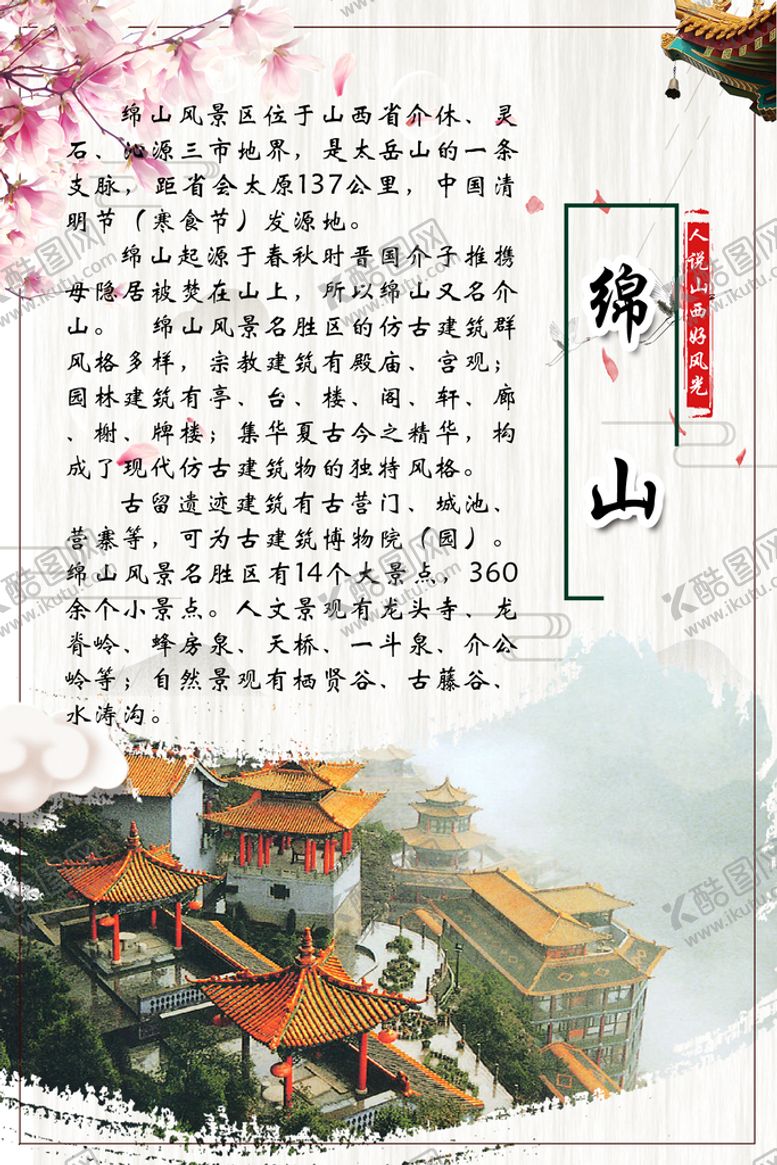 绵山风景区位于山西省介休、灵
石、沁源三市地界，是太岳山的一条
支脉，距省会太原137公里，中国清
明节（寒食节）发源地。
绵山起源于春秋时晋国介子推携
母隐居被焚在山上，所以绵山又名介
山。 绵山风景名胜区的仿古建筑群
风格多样，宗教建筑有殿庙、宫观；
园林建筑有亭、台、楼、阁、轩、廊
、榭、牌楼；集华夏古今之精华，构
成了现代仿古建筑物的独特风格。
古留遗迹建筑有古营门、城池、
营寨等，可为古建筑博物院（园）。
绵山风景名胜区有14个大景点，360
余个小景点。人文景观有龙头寺、龙
脊岭、蜂房泉、天桥、一斗泉、介公
岭等；自然景观有栖贤谷、古藤谷、
水涛沟。
绵山
人说山西好风光
酷图网
www.ikutu.com